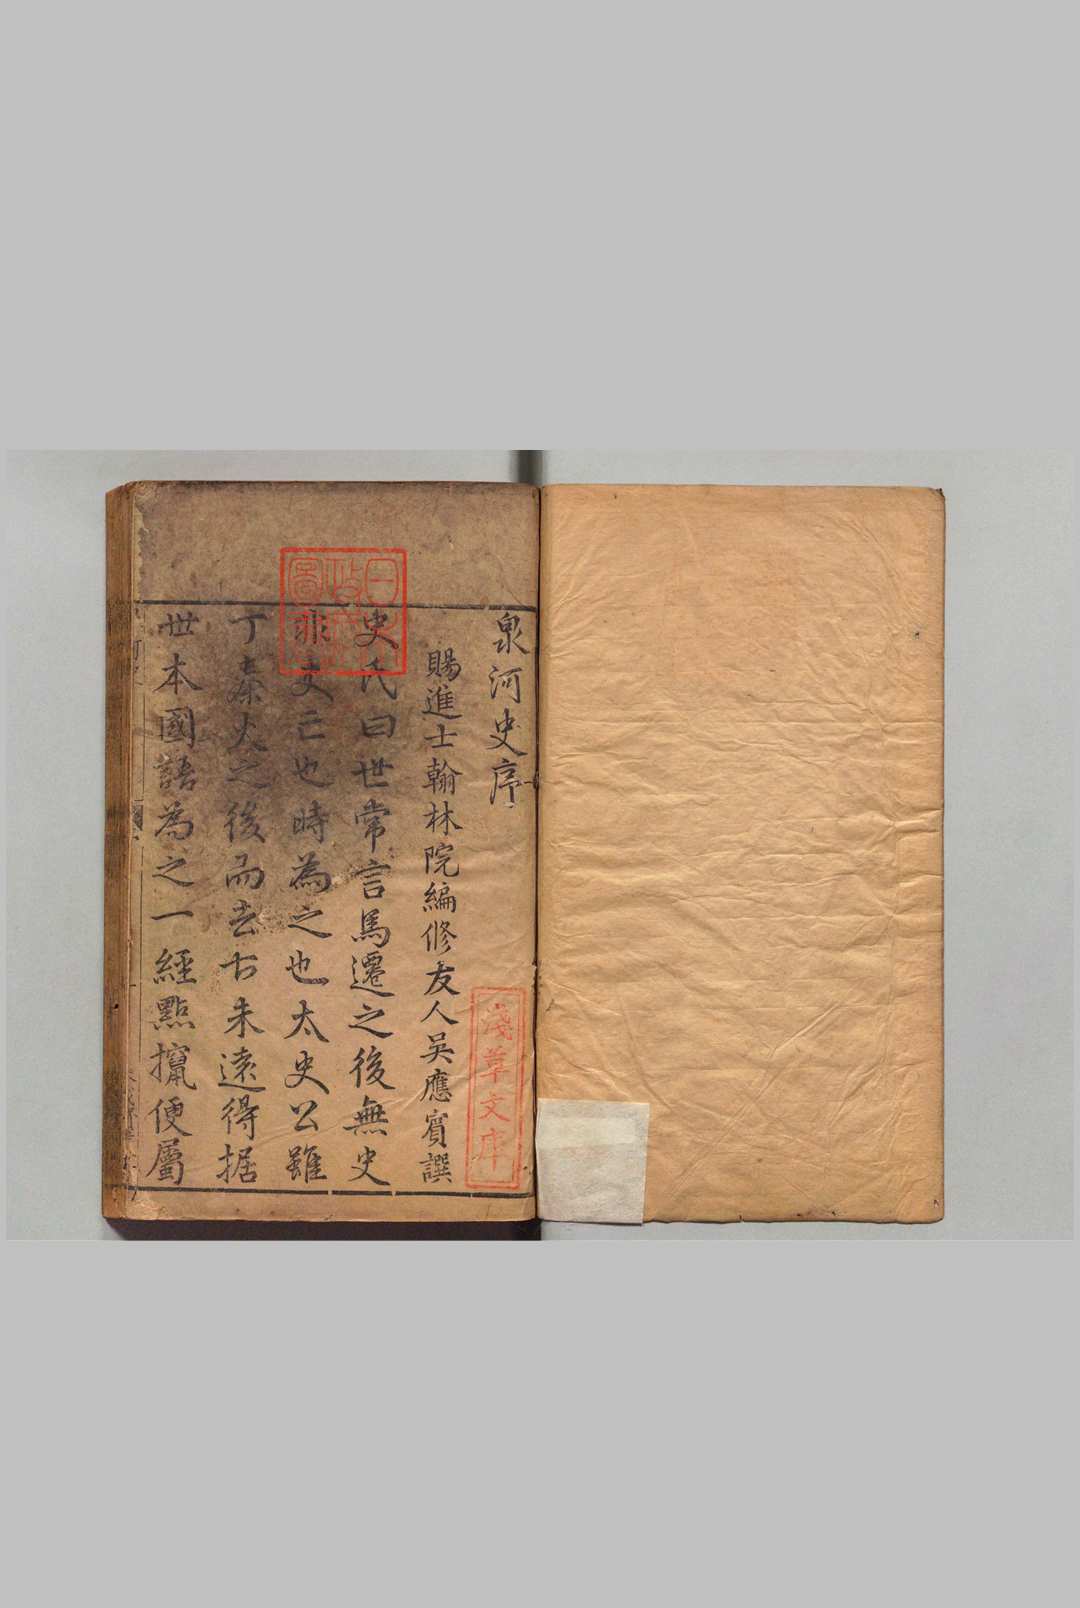 泉河史序
賜進士翰林院編修友人吳應賓譔
史氏曰世常言馬遷之後無史
非史亡也時為之也太史公雖
丁秦火之後而去古未遠得据
世本國語為之一經點攛便屬
日本政府圖書
淺草文庫